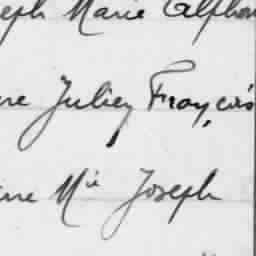 eph Marie Alphon
re Juliey François
ne Mie Joseph